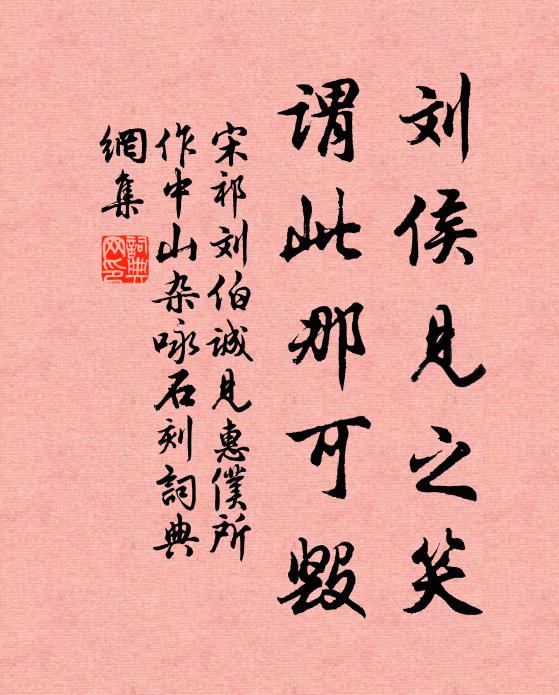 刘侯见之笑
谓此那可毁
宋祁刘伯诚见惠仆所
作中山杂咏石刻詞典
網集
詞典
网印